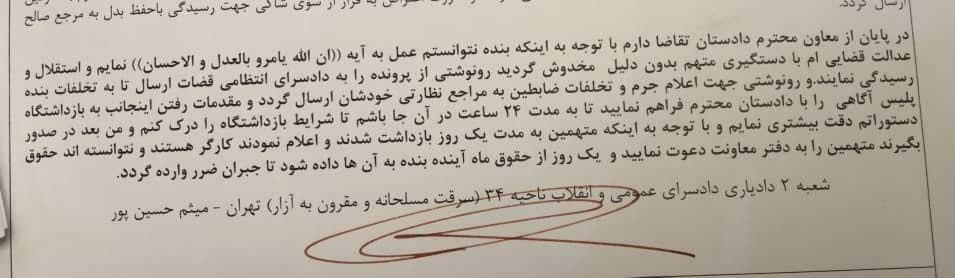 ارسال گردد.
قرار از سوی شاکی جهت رسیدگی باحفظ بدل به مرجع صالح
در پایان از معاون محترم دادستان تقاضا دارم با توجه به اینکه بنده نتوانستم عمل به آیه ((ان الله یامرو بالعدل و الاحسان)) نمایم و استقلال و
عدالت قضایی ام با دستگیری متهم بدون دلیل مخدوش گردید رونوشتی از پرونده را به دادسرای انتظامی قضات ارسال تا به تخلفات بنده
رسیدگی نمایند.و رونوشتی جهت اعلام جرم و تخلفات ضابطین به مراجع نظارتی خودشان ارسال گردد و مقدمات رفتن اینجانب به بازداشتگاه
پلیس آگاهی را با دادستان محترم فراهم نمایید تا به مدت ۲۴ ساعت در آن جا باشم تا شرایط بازداشتگاه را درک کنم و من بعد در صدور
دستوراتم دقت بیشتری نمایم و با توجه به اینکه متهمین به مدت یک روز بازداشت شدند و اعلام نمودند کارگر هستند و نتوانسته اند حقوق
بگیرند متهمین را به دفتر معاونت دعوت نمایید و یک روز از حقوق ماه آینده بنده به آن ها داده شود تا جبران ضرر وارده گردد.
شعبه ۲ دادیاری دادسرای عمومی و انقلاب ناحیه ۳۴ (سرقت مسلحانه و مقرون به آزار) تهران - میثم حسین پور